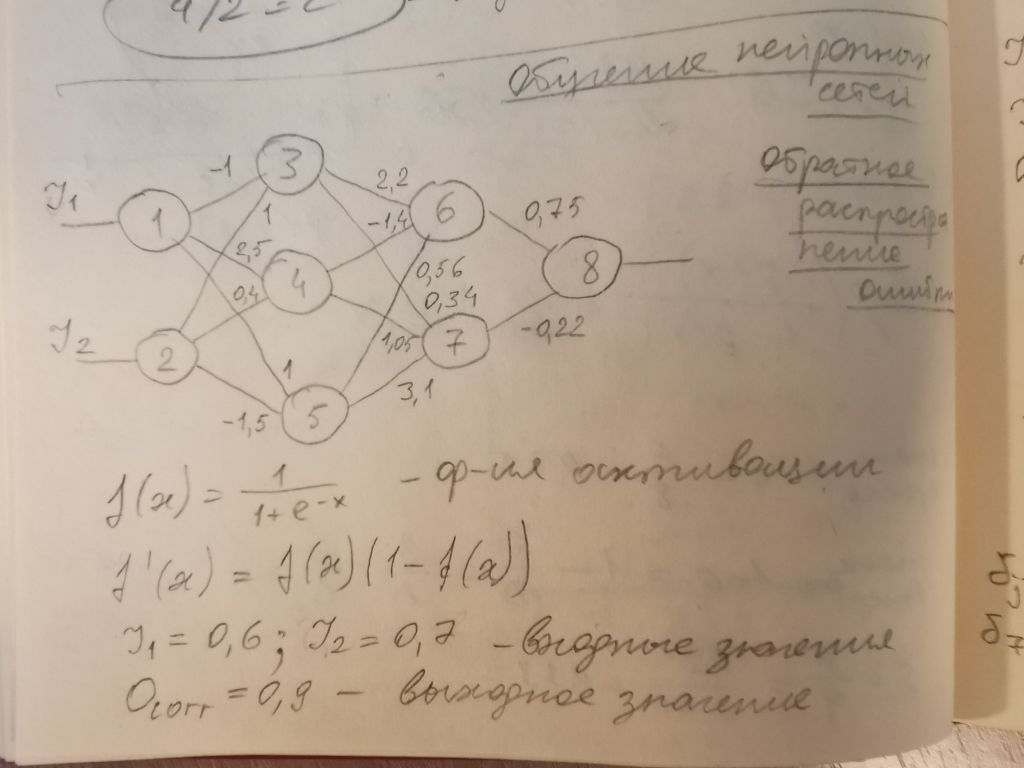 4/2 = 2
Обучение нейронных
сетей
Обратное
распростра
нение
ошибки
I₁
I₂
1
2
3
4
5
6
7
8
-1
1
2,5
0,4
1
-1,5
2,2
-1,4
0,56
0,34
1,05
3,1
0,75
-0,22
f(x) = 1/(1+e^-x) - ф-ия активации
f'(x) = f(x)(1-f(x))
I₁ = 0,6 ; I₂ = 0,7 - входные значения
Ocorr = 0,9 - выходное значение